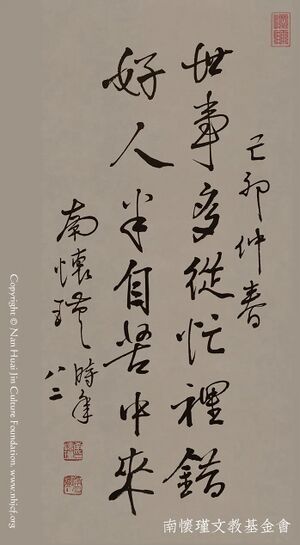 己卯仲春
世事多從忙裡錯
好人半自苦中來
南懷瑾
時年
八二
Copyright © Nan Huai Jin Culture Foundation. www.nhjcf.org
南懷瑾文教基金會